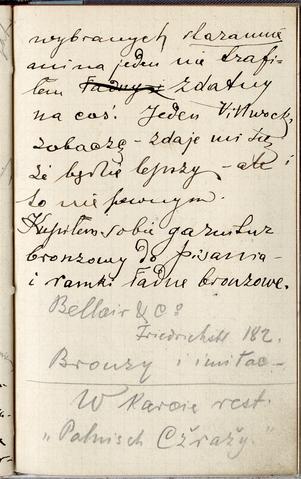 wybranych starannie
ani na jeden nie trafi-
łem zdatny
na coś. Jeden
zobaczę - zdaje mi się,
że będzie lepszy - ale i
to nie pewnym.
Kupiłem sobie garnitur
bronzowy do pisania -
i ramki ładne bronzowe.
Bellair & Co
Friedrichstr 182.
Bronzy i imitac-
W karcie rest.
"Polnisch Cžražy."